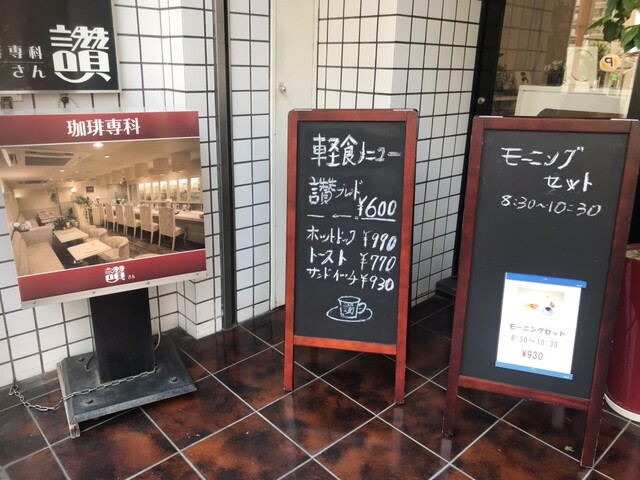 珈琲専科
讃さん
珈琲専科
讃さん
軽食メニュー
讃ブレンド
¥600
ホットドック ¥990
トースト ¥770
サンドイッチ ¥930
讃
モーニング
セット
8:30~10:30
モーニングセット
8:30～10:30
¥930
P